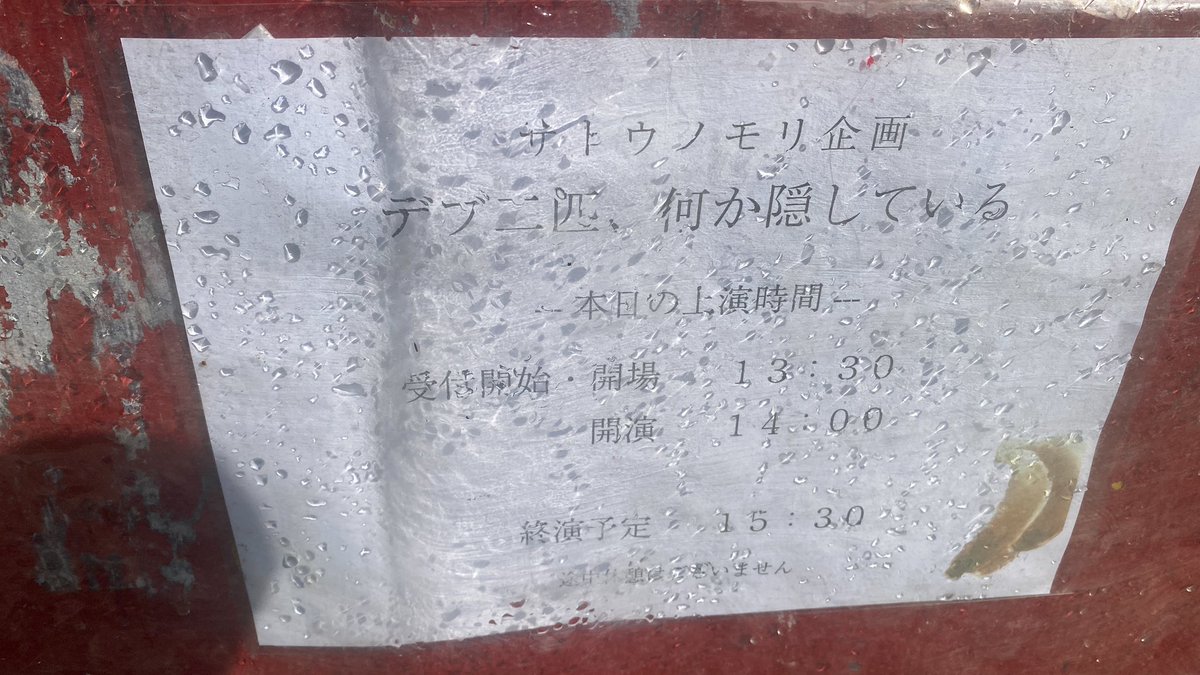 サトウノモリ企画
デブ二匹、何か隠している
--- 本日の上演時間 ---
受付開始・開場 13:30
開演 14:00
終演予定 15:30
途中休憩はございません